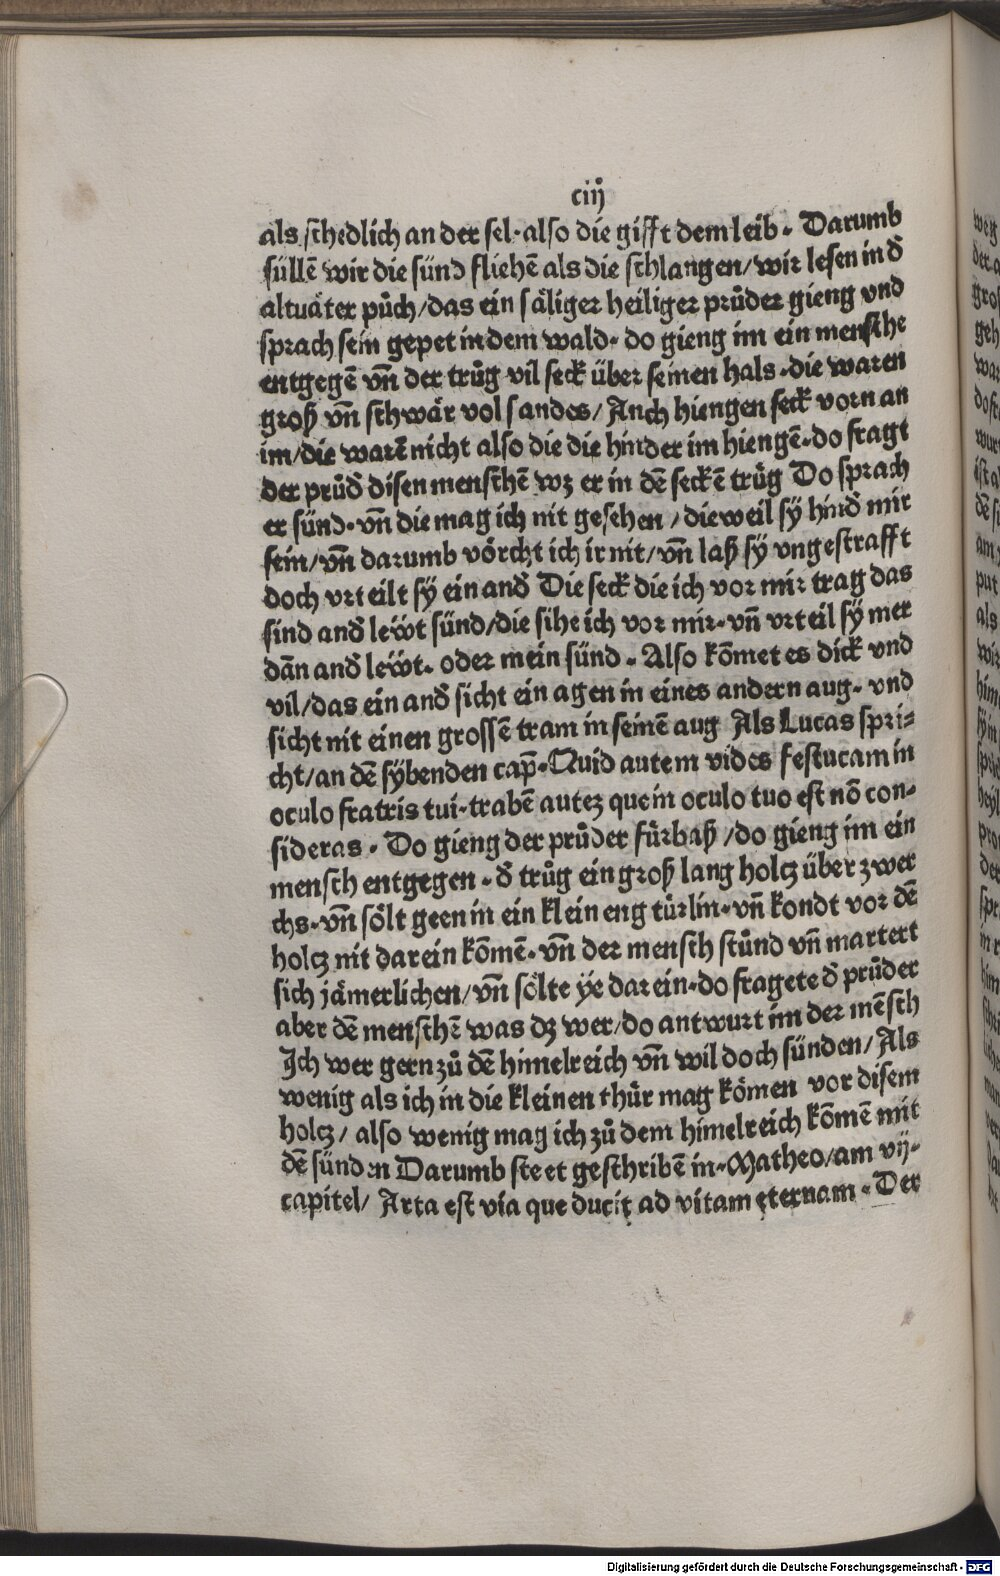 ciiͦj
als schedlich an der sel· also die gifft dem leib· Darumb
süllē wir die sünd fliehē als die schlangen/ wir lesen in đ
altuäter půch/ das ein säliger heiliger průder gieng vnd
sprach sein gepet in dem wald· do gieng im ein mensche
entgegē vñ der trůg vil seck über seinen hals· die waren
groß vñ schwär vol sandes/ Auch hiengen seck vorn an
im/ die warē nicht also die die hinder im hiengē· do fragt
der průđ disen menschē wz er in dē seckē trůg Do sprach
er sünd· vñ die mag ich nit gesehen/ dieweil sÿ hinđ mir
sein/ vñ darumb vörcht ich ir nit/ vñ laß sÿ vngestrafft
doch vrteilt sÿ ein anđ Die seck die ich vor mir trag das
sind anđ lewt sünd/ die sihe ich vor mir· vñ vrteil sÿ mer
dān anđ lewt· oder mein sünd· Also kōmet es dick vnd
vil/ das ein anđ sicht ein agen in eines andern aug· vnd
sicht nit einen grossē tram in seinē aug Als Lucas spri-
cht/ an dē sÿbenden cap̄· Quid autem vides festucam in
oculo fratris tui· trabē autez que in oculo tuo est nō con-
sideras· Do gieng der průder fürbaß/ do gieng im ein
mensch entgegen· đ trůg ein groß lang holcz über zwer
chs· vñ sölt geen in ein klein eng türlin· vñ kondt vor dē
holcz nit darein kōmē· vñ der mensch stůnd vñ martert
sich jämerlichen/ vñ sölte ye darein· do fragete đ průder
aber dē menschē was dz wer/ do antwurt im der mēsch
Ich wer gern zů dē himelreich vñ wil doch sünden/ Als
wenig als ich in die kleinen thür mag kömen vor disem
holcz/ also wenig mag ich zů dem himelreich kōmē mit
dē sünden Darumb steet geschribē in· Matheo/ am vij·
capitel/ Arta est via que ducit ad vitam eternam· Der
Digitalisierung gefördert durch die Deutsche Forschungsgemeinschaft - DFG